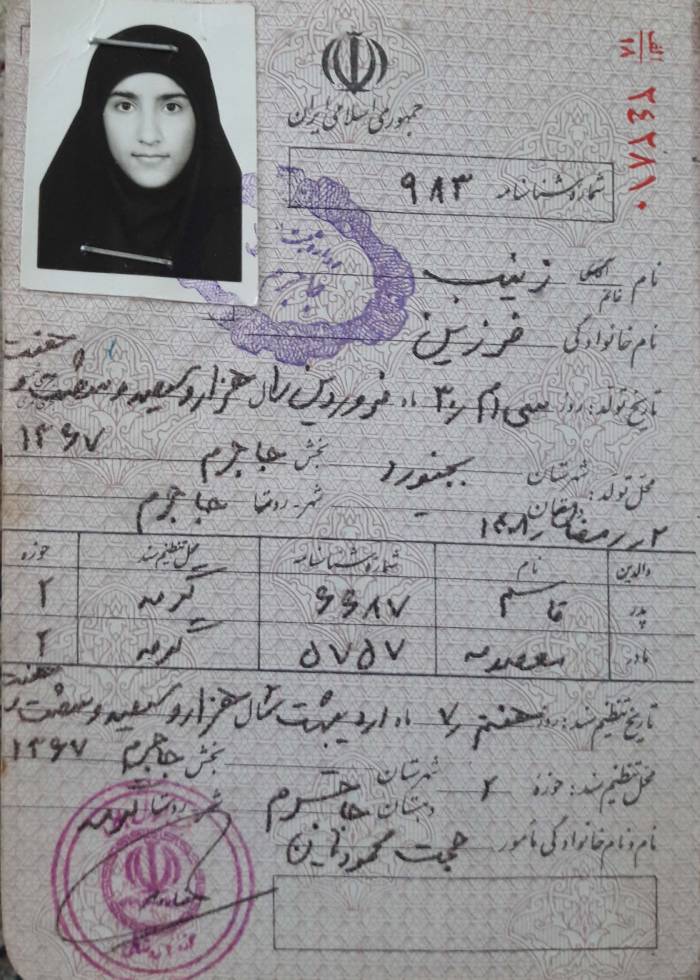 الف/۱۸ ۲۴۲۸۸۰
جمهوری اسلامی ایران
شماره شناسنامه ۹۸۳
نام آقای/خانم زینب
نام خانوادگی فرزین
تاریخ تولد: روز سی ام ر۳۰ ماه فروردین سال هزار و سیصد و شصت و هفت
۱۳۶۷
محل تولد: شهرستان بجنورد بخش جاجرم
دهستان شهر-روستا جاجرم
۲ ر رمضان
والدین نام شماره شناسنامه محل تنظیم سند حوزه
پدر قاسم ۶۶۸۷ گرمه ۲
مادر معصومه ۵۷۵۷ گرمه ۲
تاریخ تنظیم سند: روز هفتم ر۷ ماه اردیبهشت سال هزار و سیصد و شصت و هفت
۱۳۶۷
محل تنظیم سند: حوزه ۲ شهرستان بخش جاجرم
دهستان جاجرم شهر-روستا گرمه
نام و نام خانوادگی مأمور حجت محمودزاین